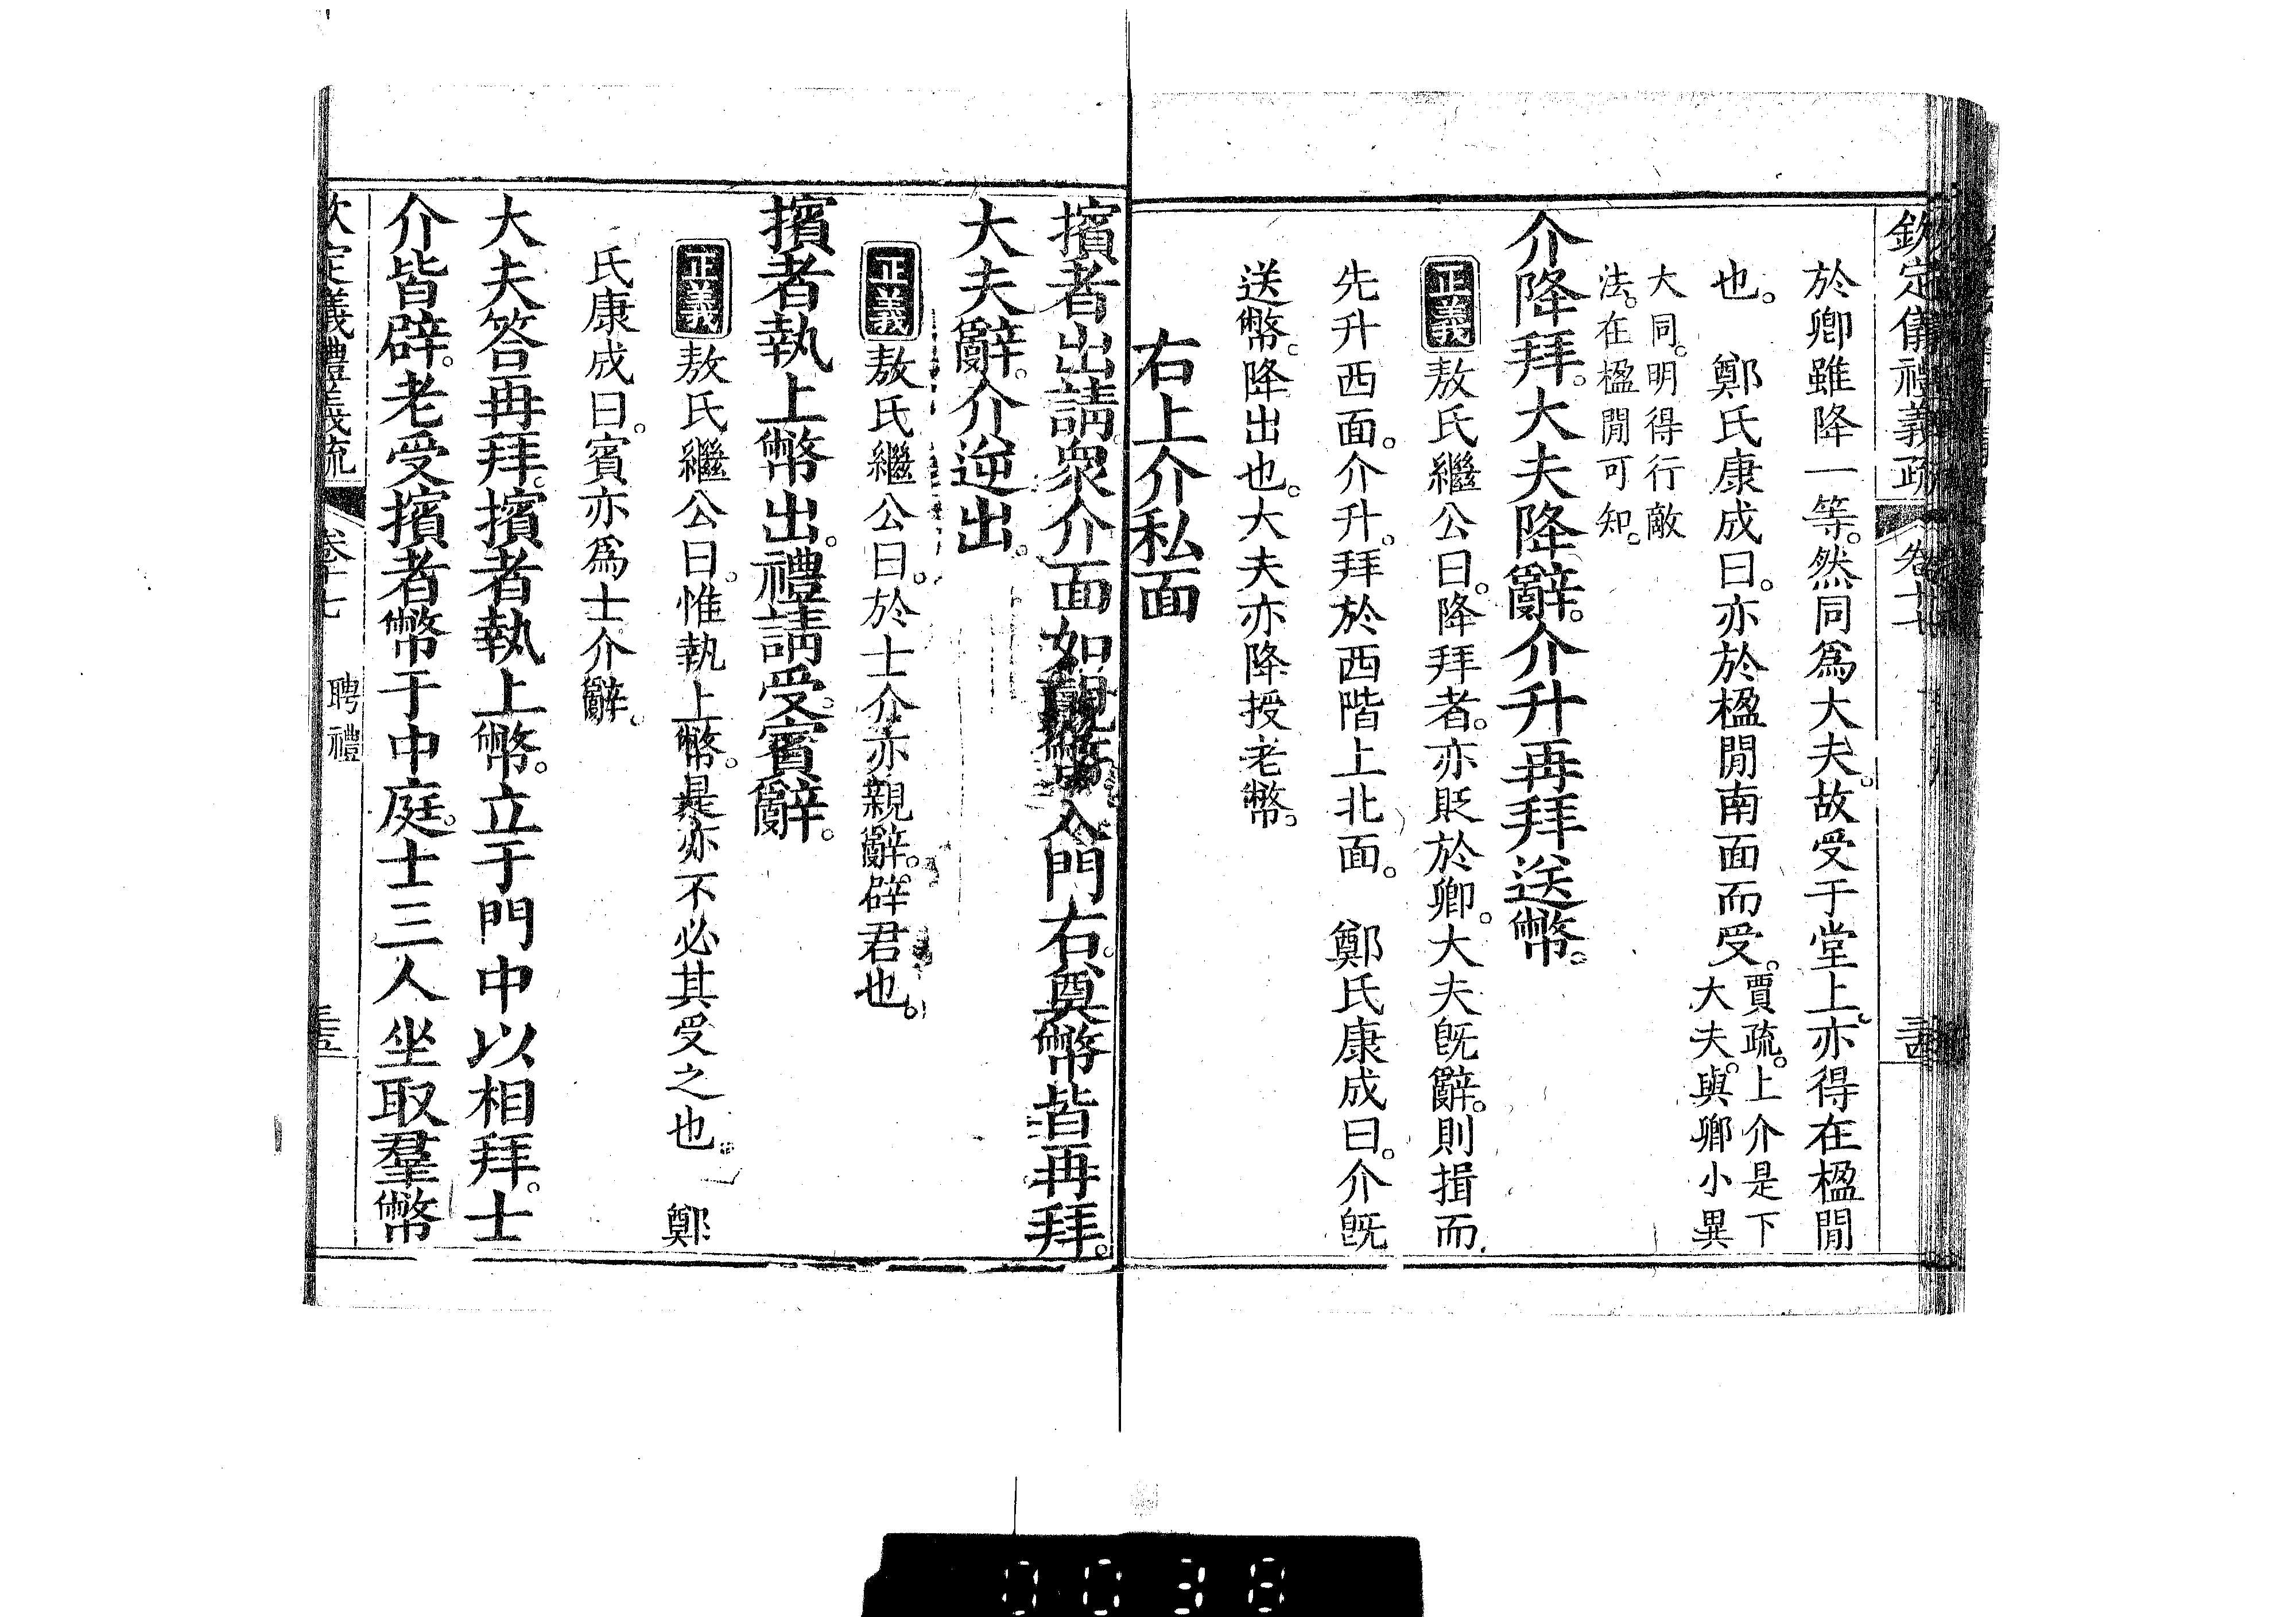 欽定儀禮義疏 卷十七
於卿雖降一等。然同爲大夫。故受于堂上。亦得在楹閒
也。 鄭氏康成曰。亦於楹閒南面而受。賈疏。上介是下
大夫。與卿小異
大同。明得行敵
法。在楹閒可知。
介降拜。大夫降辭。介升再拜送幣。
正義敖氏繼公曰。降拜者。亦貶於卿。大夫旣辭。則揖而
先升西面。介升。拜於西階上北面。 鄭氏康成曰。介旣
送幣。降出也。大夫亦降授老幣。
右上介私面
擯者出請。衆介面如覿幣。入門右。奠幣皆再拜。
大夫辭。介逆出。
正義敖氏繼公曰。於士介亦親辭。辟君也。
擯者執上幣出。禮請受。賓辭。
正義敖氏繼公曰。惟執上幣。是亦不必其受之也。 鄭
氏康成曰。賓亦爲士介辭。
大夫答再拜。擯者執上幣。立于門中以相拜。士
介皆辟。老受擯者幣于中庭。士三人坐取羣幣
欽定儀禮義疏 卷十七 聘禮
0038